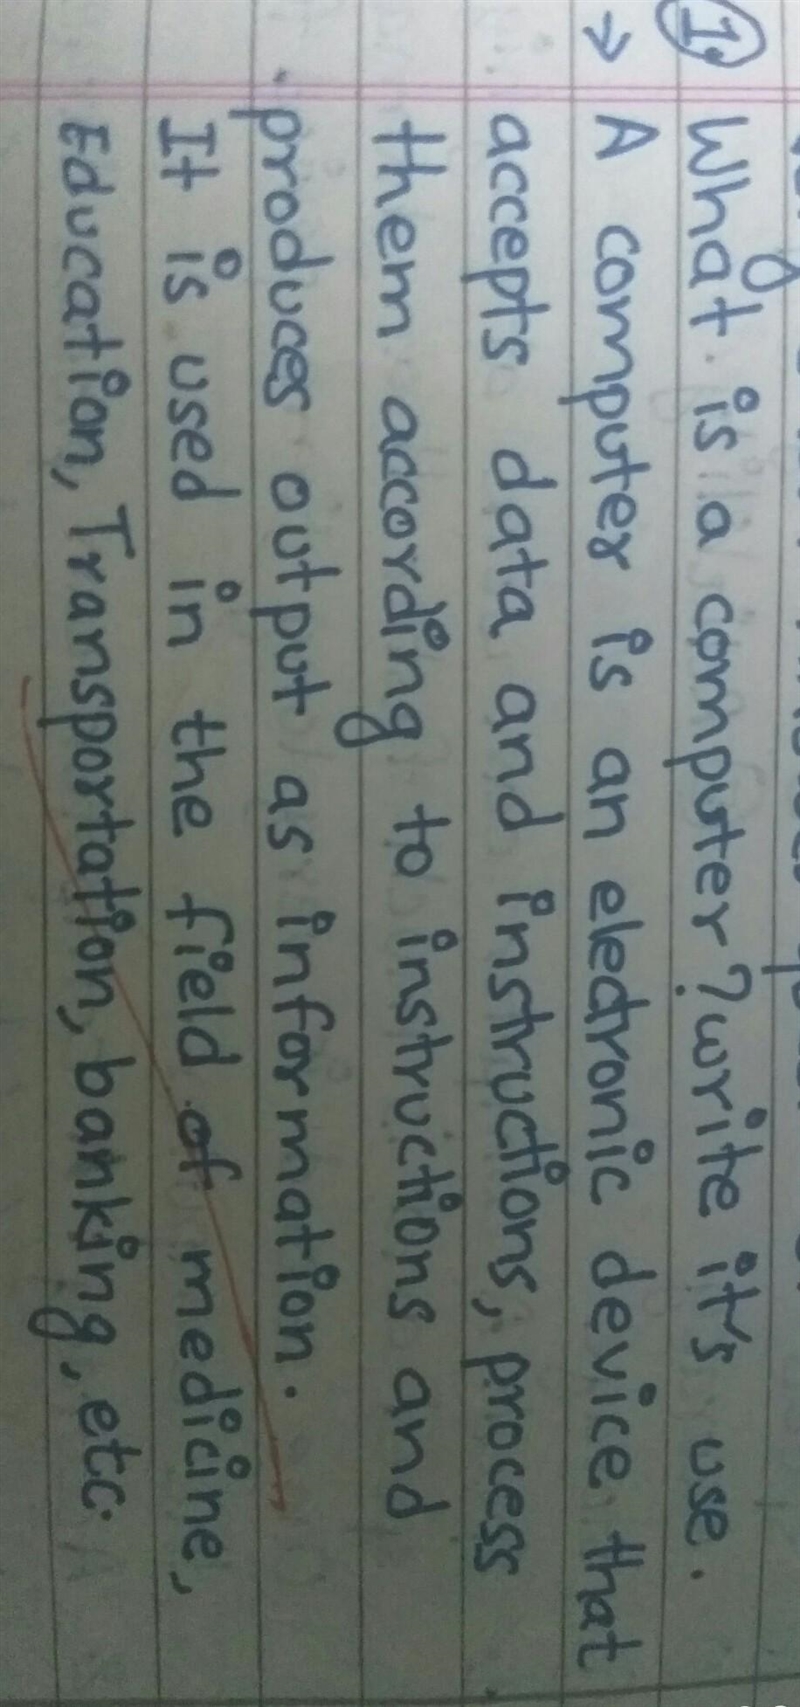 1. What is a computer? write it's use.
→ A computer is an electronic device that
accepts data and instructions, process
them according to instructions and
produces output as information.
It is used in the field of medicine,
Education, Transportation, banking, etc.